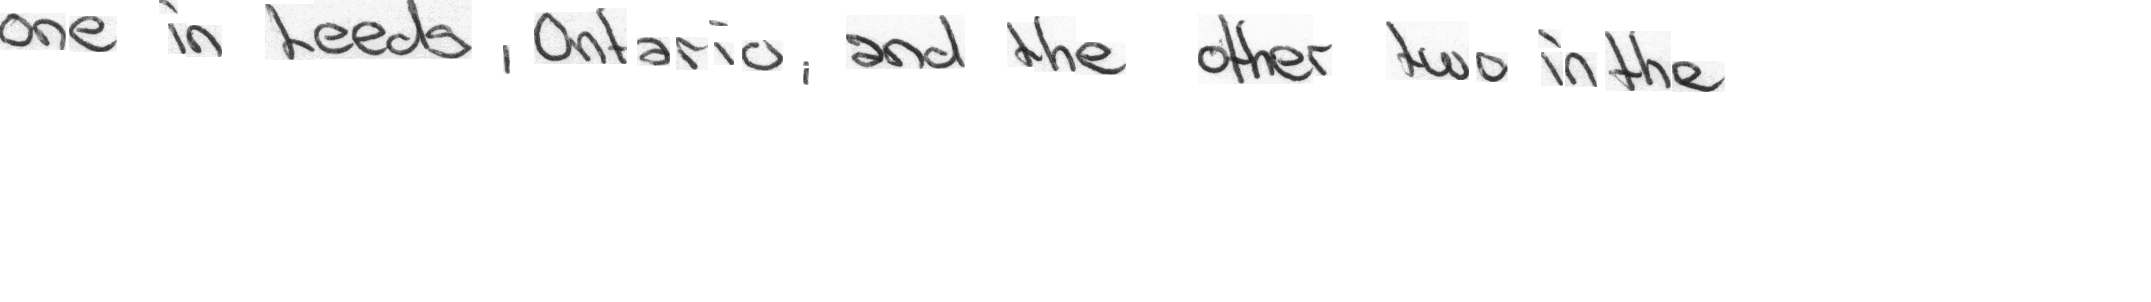 one in Leeds, Ontario, and the other two in the